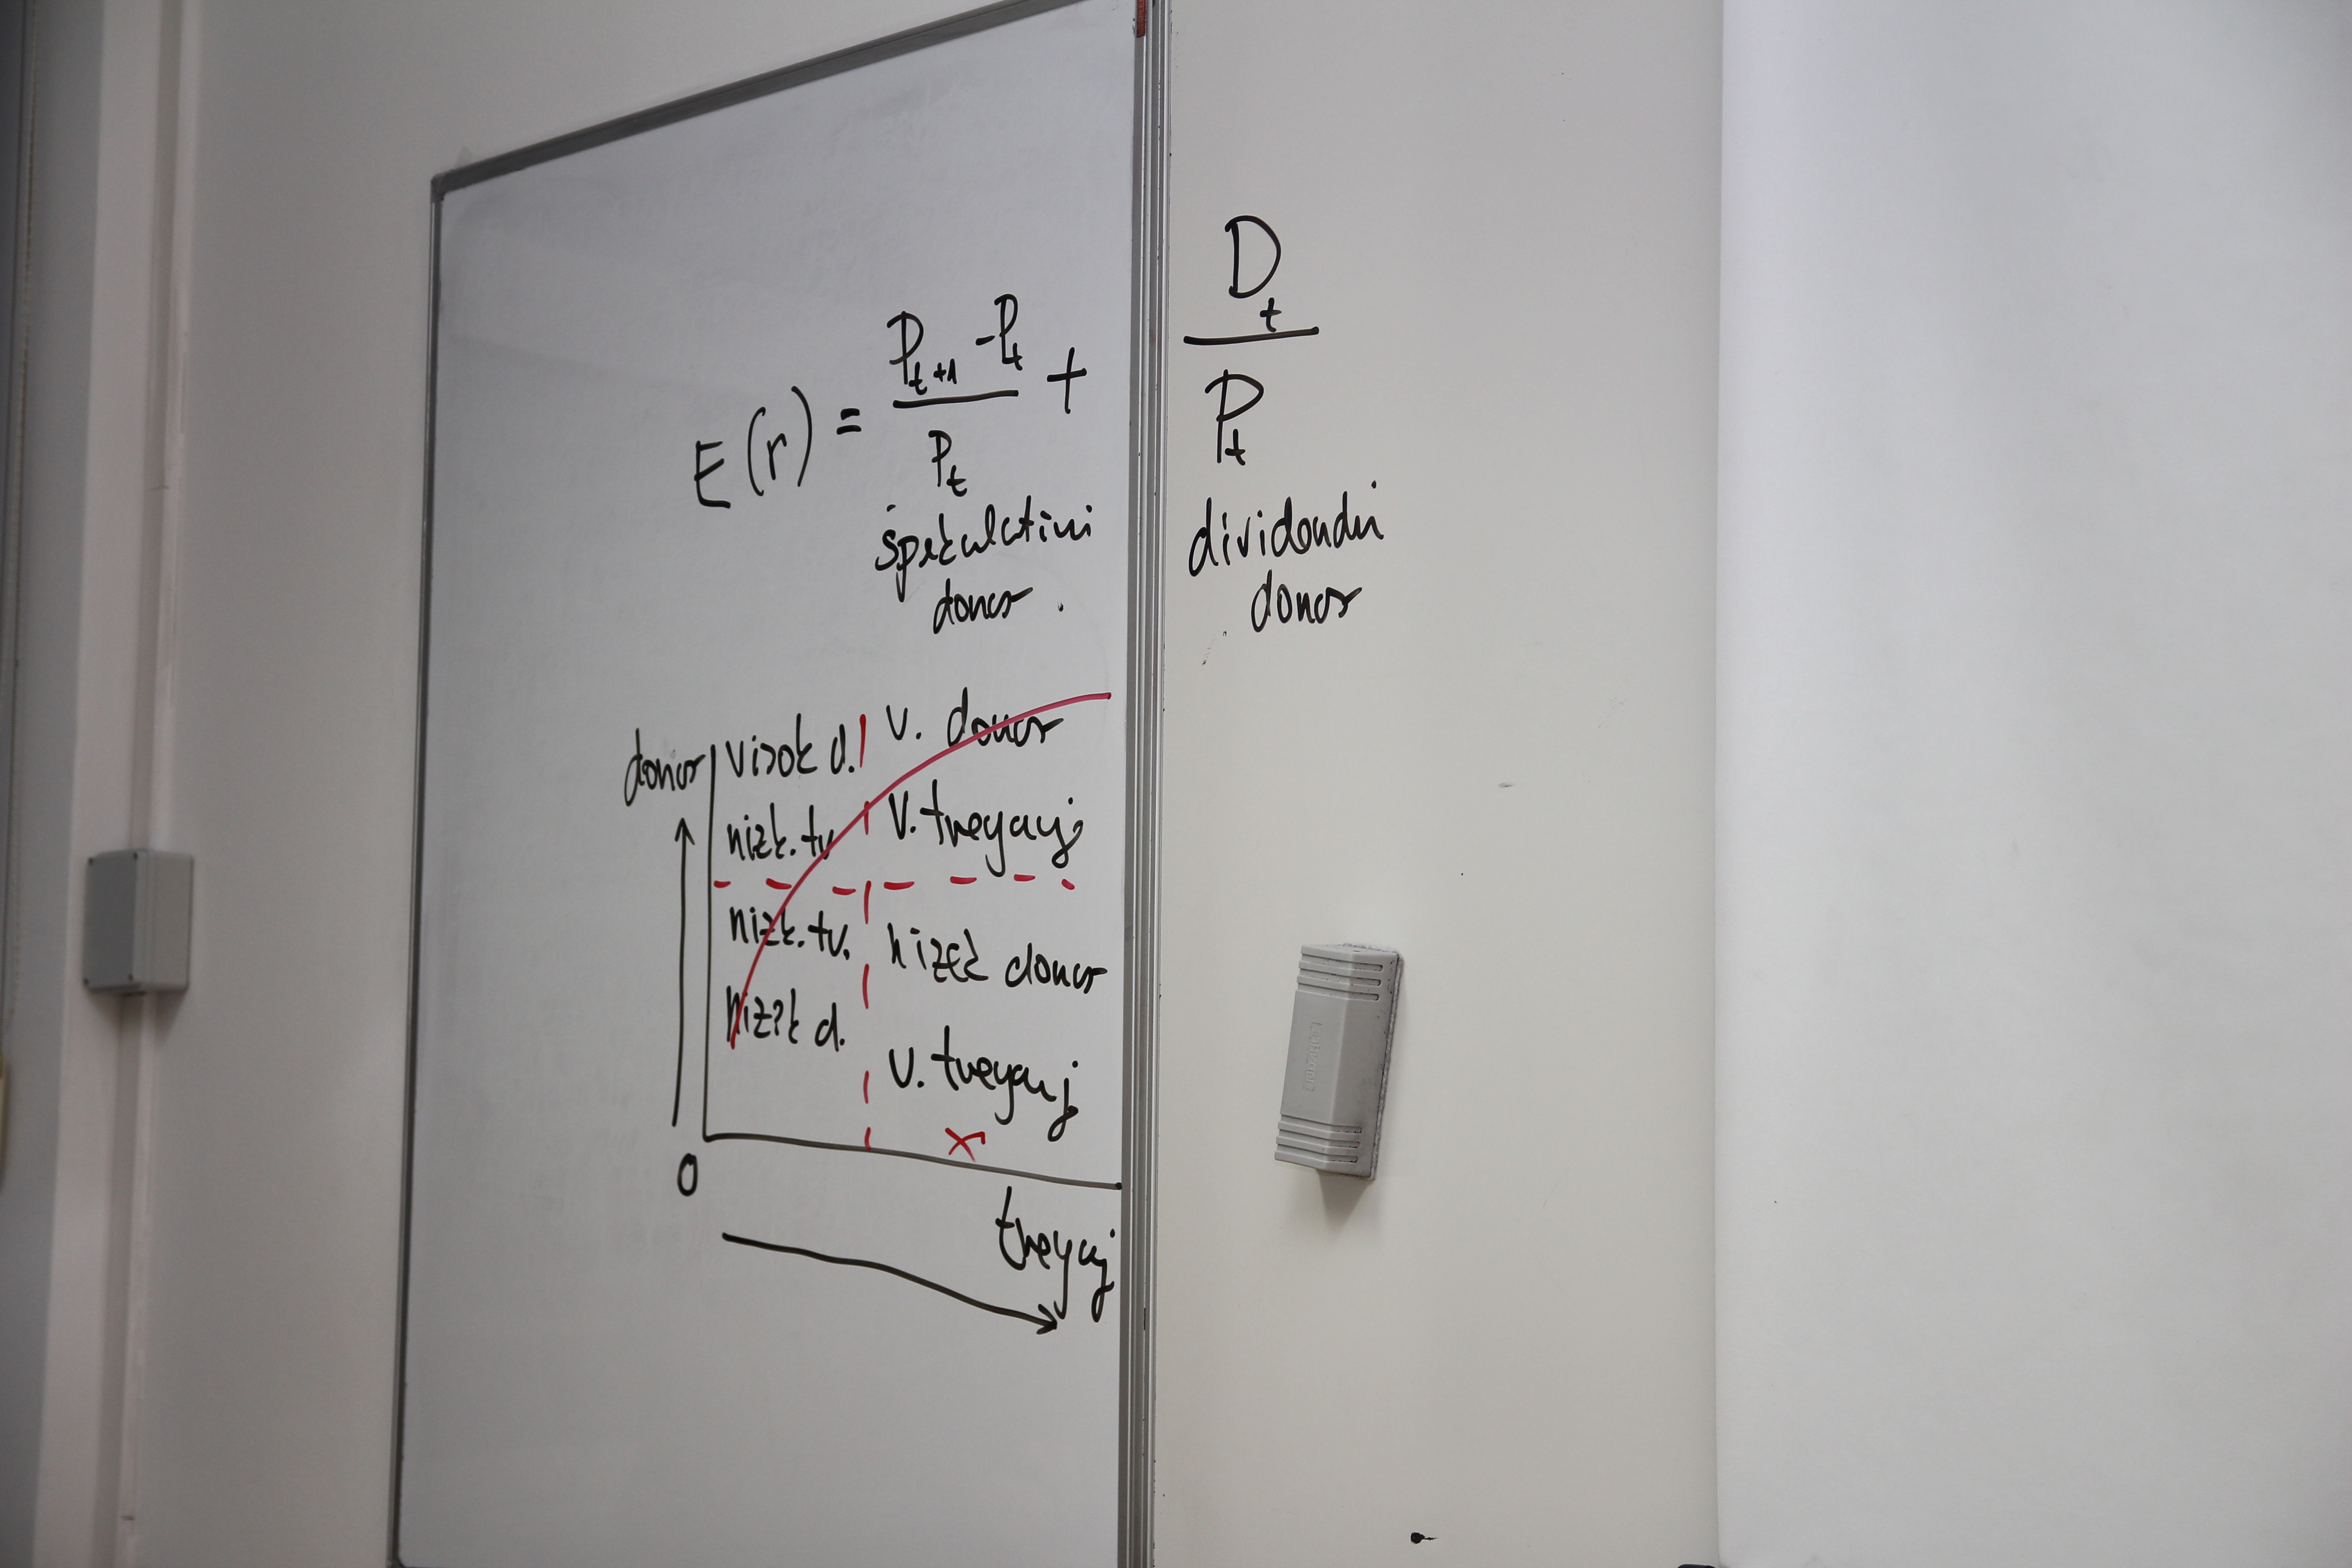 E(r) = (P_{t+1} - P_t) / P_t + D_t / P_t
špekulativni dividendni
donos donos
donos visok d. v. donos
nizk. tv v. tveganj
nizk. tv. nizek donos
nizek d. v. tveganj
x
0
tveganj